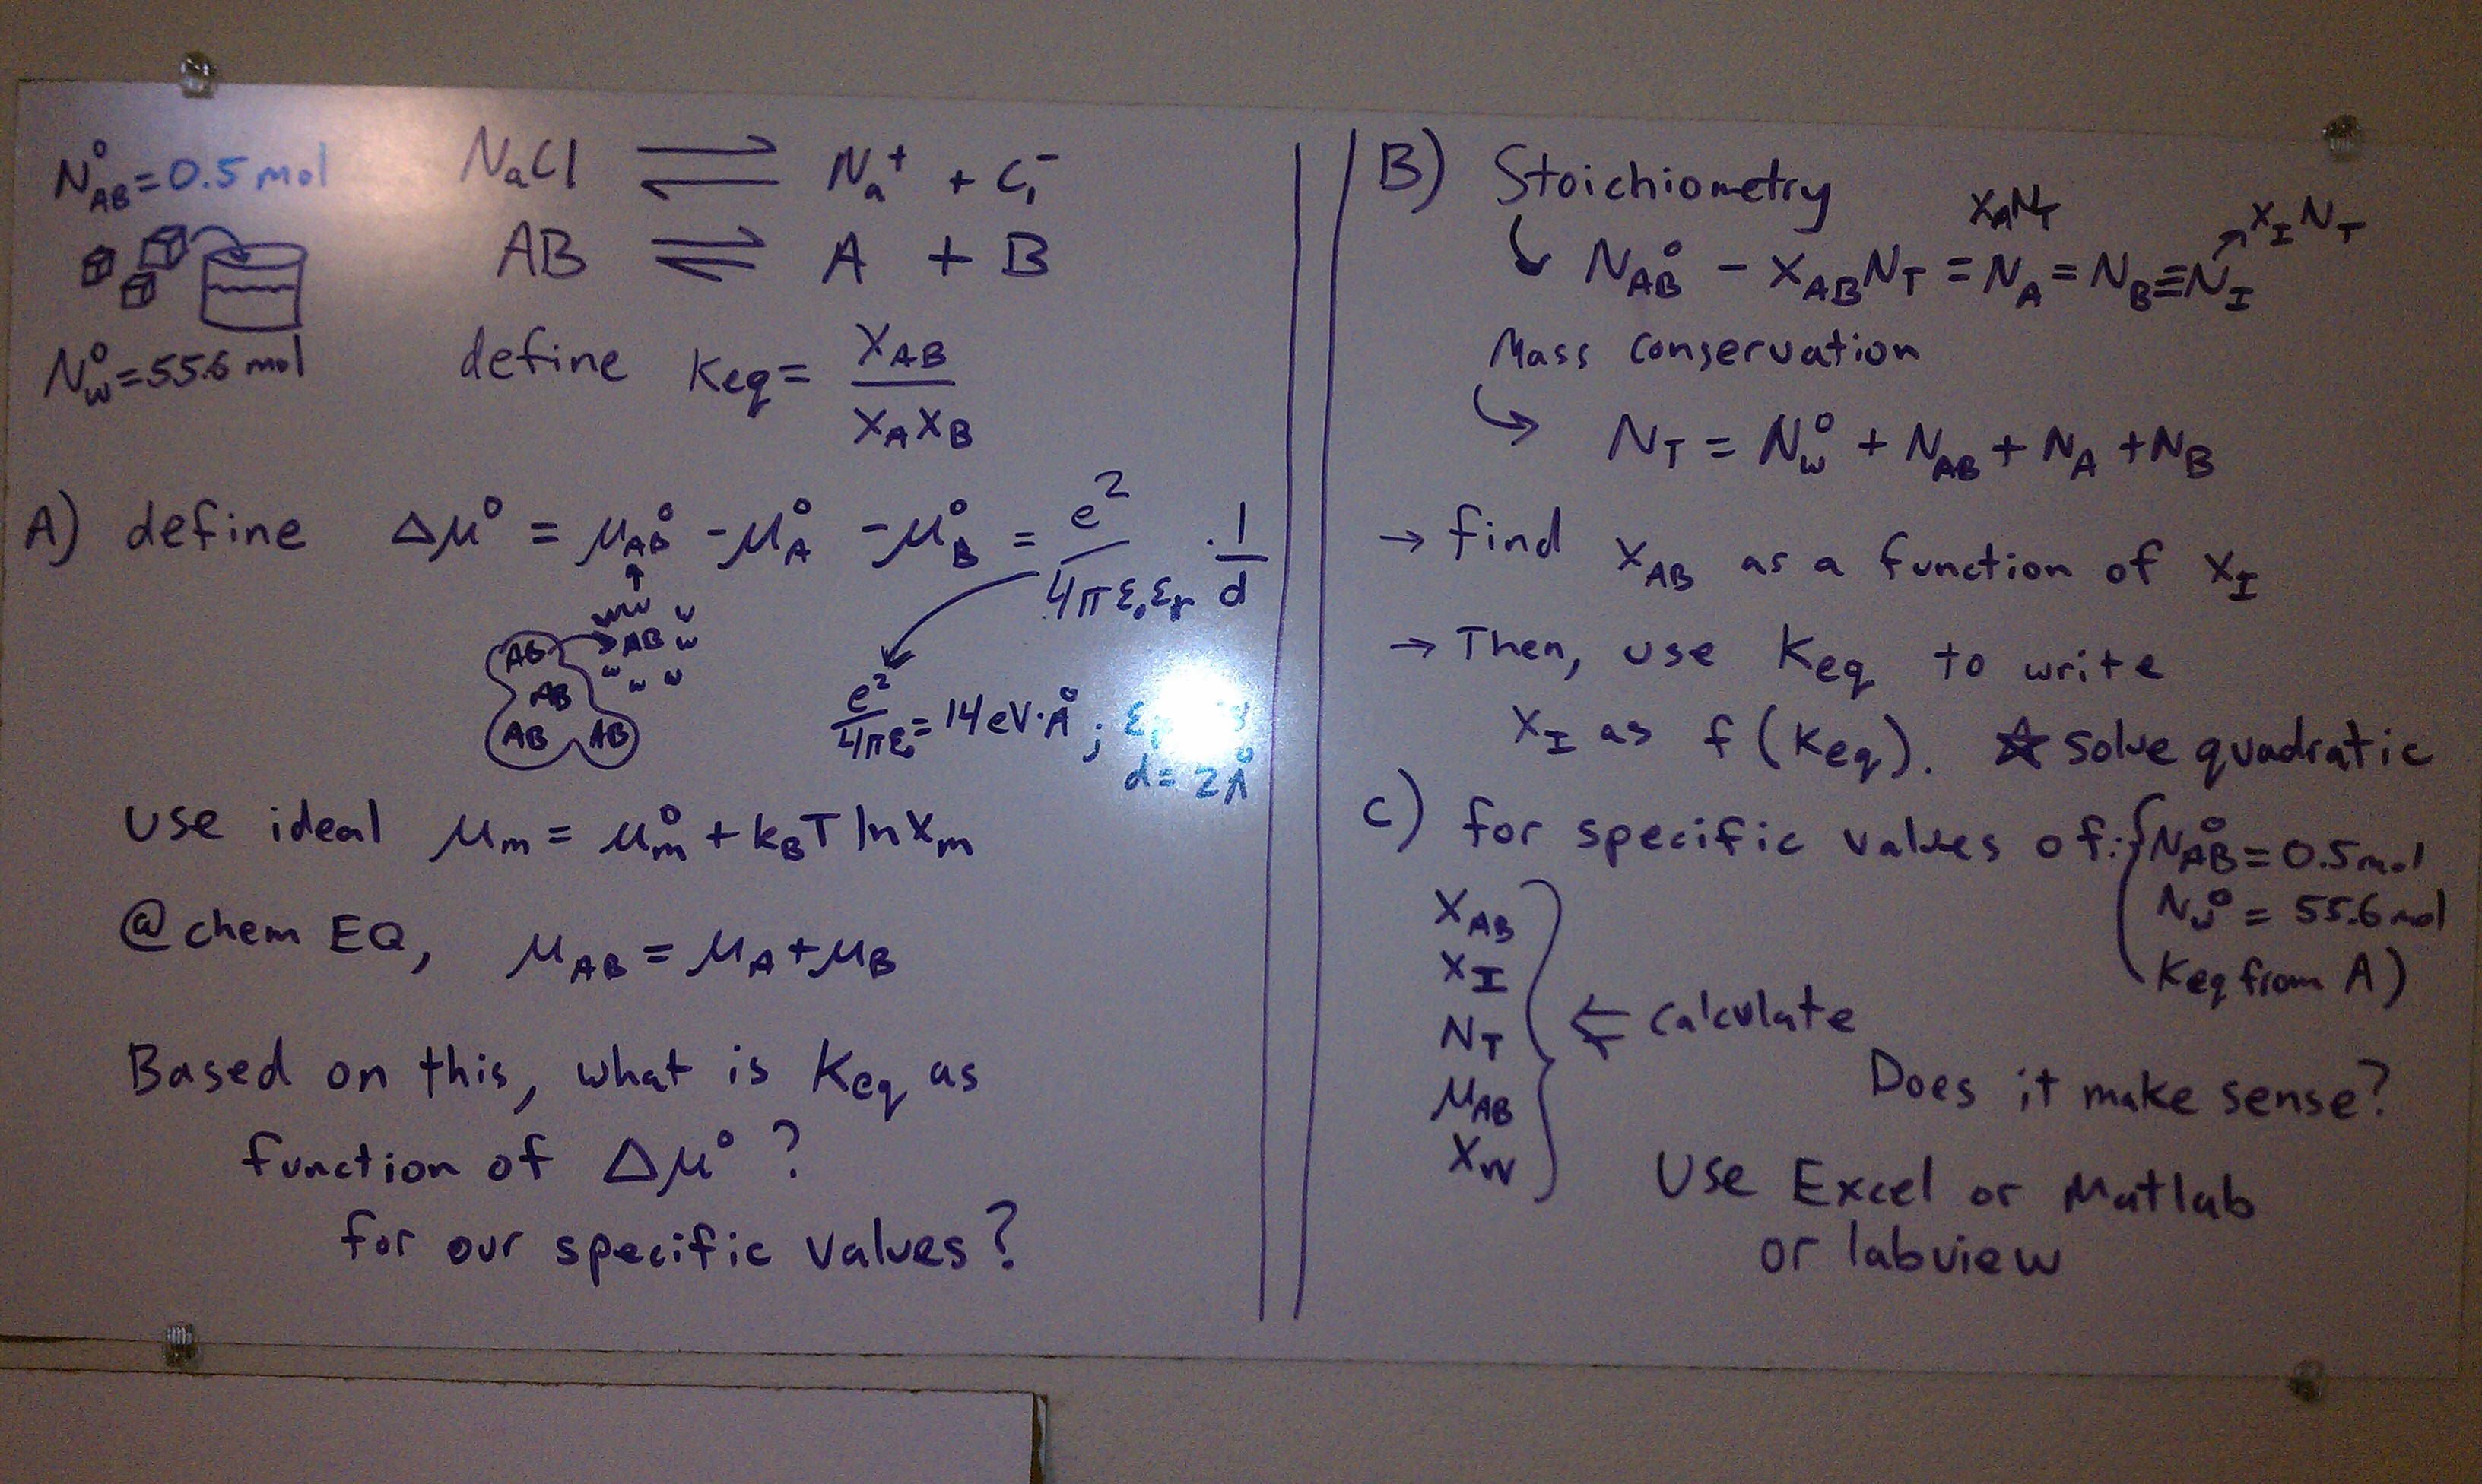 N°AB = 0.5 mol
NaCl ⇌ Na⁺ + Cl⁻
AB ⇌ A + B
N°w = 55.6 mol
define Keq = XAB / XA XB
A) define Δμ° = μ°AB - μ°A - μ°B = e² / 4πε₀εr · 1/d
w w w w
AB AB w
AB w w w
AB AB
e² / 4πε₀ = 14 eV·Å ;
d = 2 Å
Use ideal μm = μ°m + kBT ln Xm
@ chem EQ, μAB = μA + μB
Based on this, what is Keq as
function of Δμ° ?
for our specific values?
B) Stoichiometry
XA NT XI NT
N°AB - XAB NT = NA = NB ≡ NI
Mass conservation
NT = N°w + NAB + NA + NB
→ find XAB as a function of XI
→ Then, use Keq to write
XI as f (Keq). ☆ solve quadratic
C) for specific values of: { N°AB = 0.5 mol
N°w = 55.6 mol
Keq from A)
XAB
XI
NT
μAB
Xw
⇐ calculate
Does it make sense?
Use Excel or Matlab
or labview